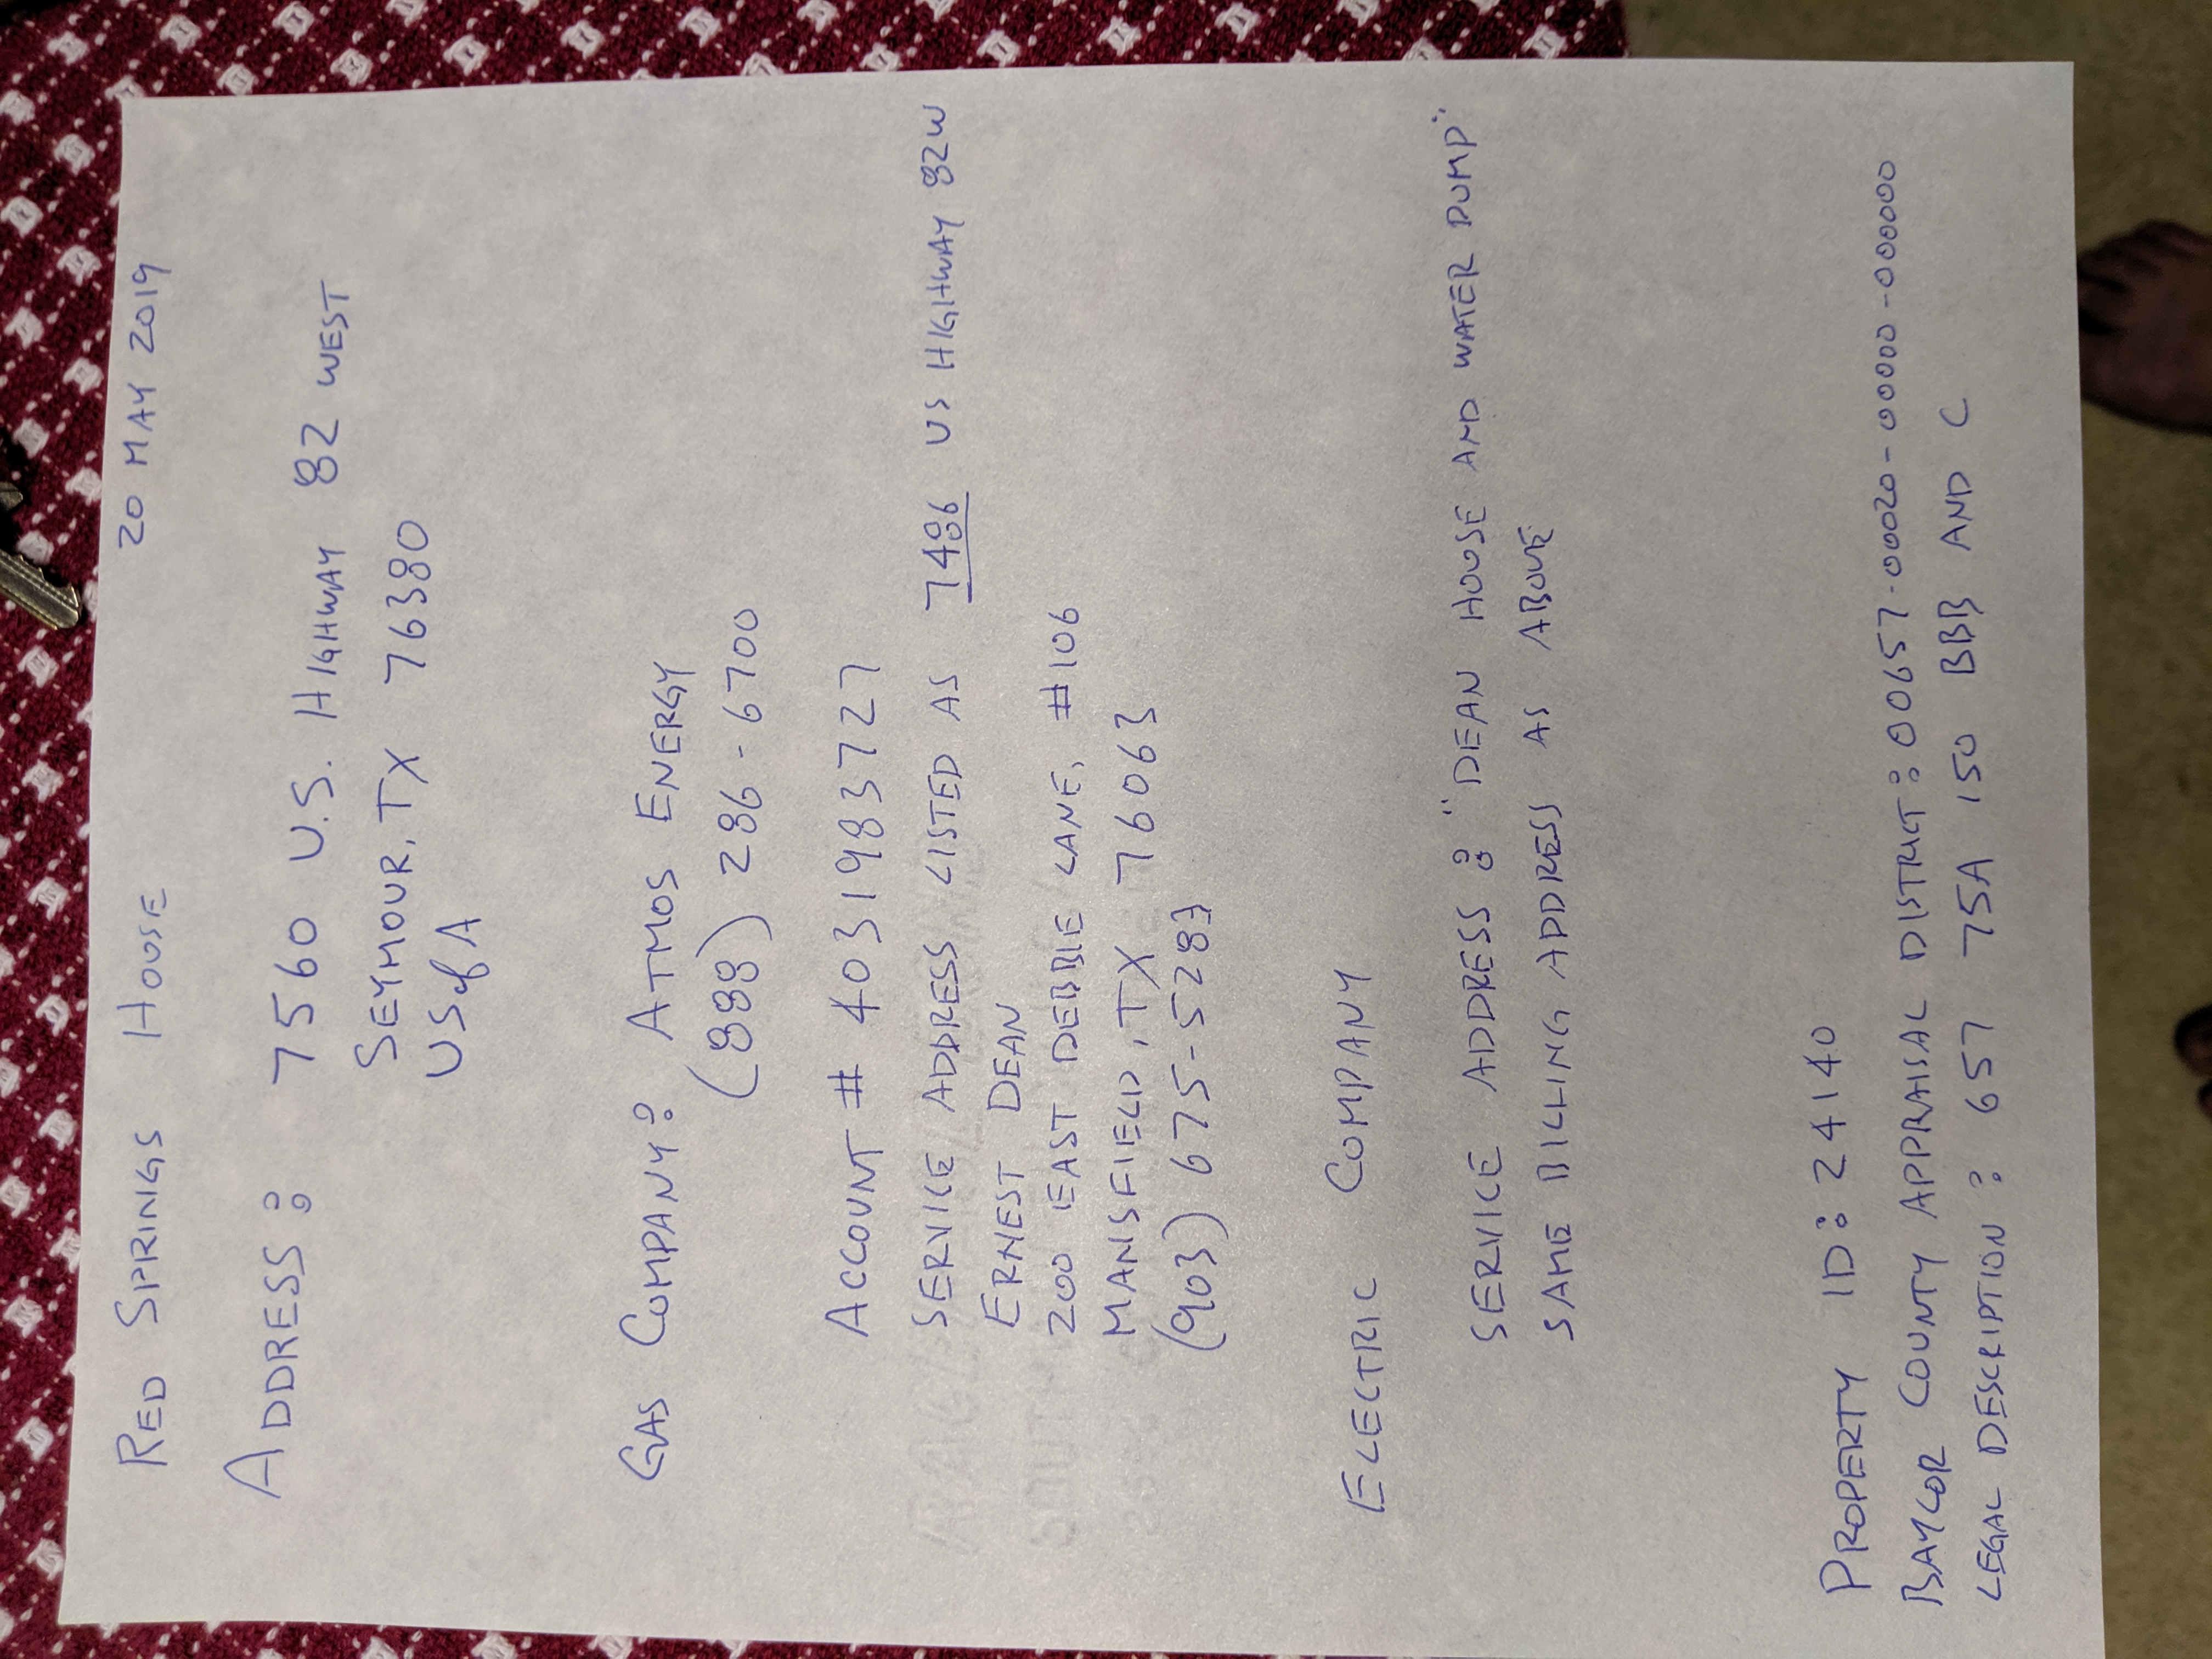 RED SPRINGS HOUSE 20 MAY 2019
ADDRESS: 7560 U.S. HIGHWAY 82 WEST
SEYMOUR, TX 76380
US of A
GAS COMPANY: ATMOS ENERGY
(888) 286-6700
ACCOUNT # 4031983727
SERVICE ADDRESS LISTED AS 7486 US HIGHWAY 82W
ERNEST DEAN
200 EAST DEBBIE LANE, #106
MANSFIELD, TX 76063
(903) 675-5283
ELECTRIC COMPANY
SERVICE ADDRESS: "DEAN HOUSE AND WATER PUMP"
SAME BILLING ADDRESS AS ABOVE
PROPERTY ID: 24140
BAYLOR COUNTY APPRAISAL DISTRICT: 00657-00020-00000-000000
LEGAL DESCRIPTION: 657 75A 150 BBB AND C